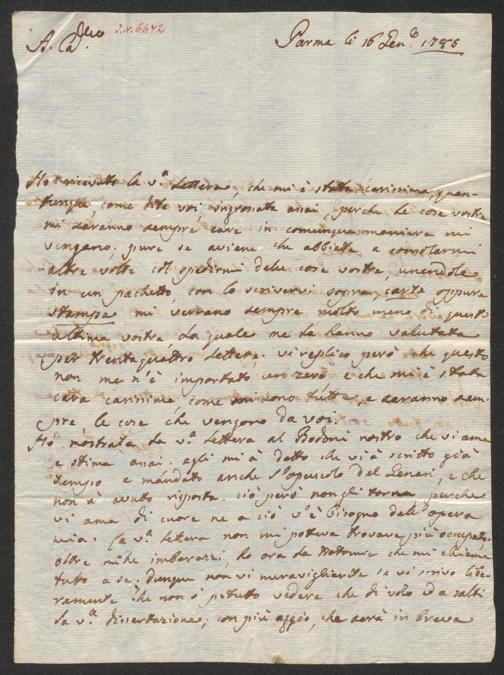 A. Ca.^mo J.N.6642 Parma li 16 Gen.° 1786
Ho ricevuto la v.ª Lettera, che mi è stata carissima, quan-
tunque, come dite voi ingrossata assai, perche le cose vostre
mi saranno sempre care in comunque maniera mi
vengano; pure se aviene che abbiate a consolarmi
altre volte col spedirmi delle cose vostre, unendole
in un pachetto, con lo scrivervi sopra, carte oppure
stampa mi verrano sempre molto meno di questa
ultima vostra, la quale me la hanno valutata
per trentaquattro Lettere; vi replico però che questo
non me n'è importato un zero, e che mi è stata
cara carissima come mi sono tutte, e saranno sem-
pre, le cose che vengono da voi.
Ho mostrata la v.ª Lettera al Bodoni nostro che vi ama
e stima assai: egli mi à detto che vi à scritto già
tempo e mandato anche l'opuscolo del e che
non à avuto risposta. ciò però non gli torna perche
vi ama di cuore ne a ciò v'è bisogno dell'opera
mia: la v.ª lettera non mi poteva trovare più occupato
oltre mille imbarazzi, ho ora la Notomia che mi chiama
tutto a se; dunque non vi meravigliarete se vi scrivo libe-
ramente che non ò potuto vedere che di volo ed a salti
la v.ª dissertazione; con più aggio, che serà in breve